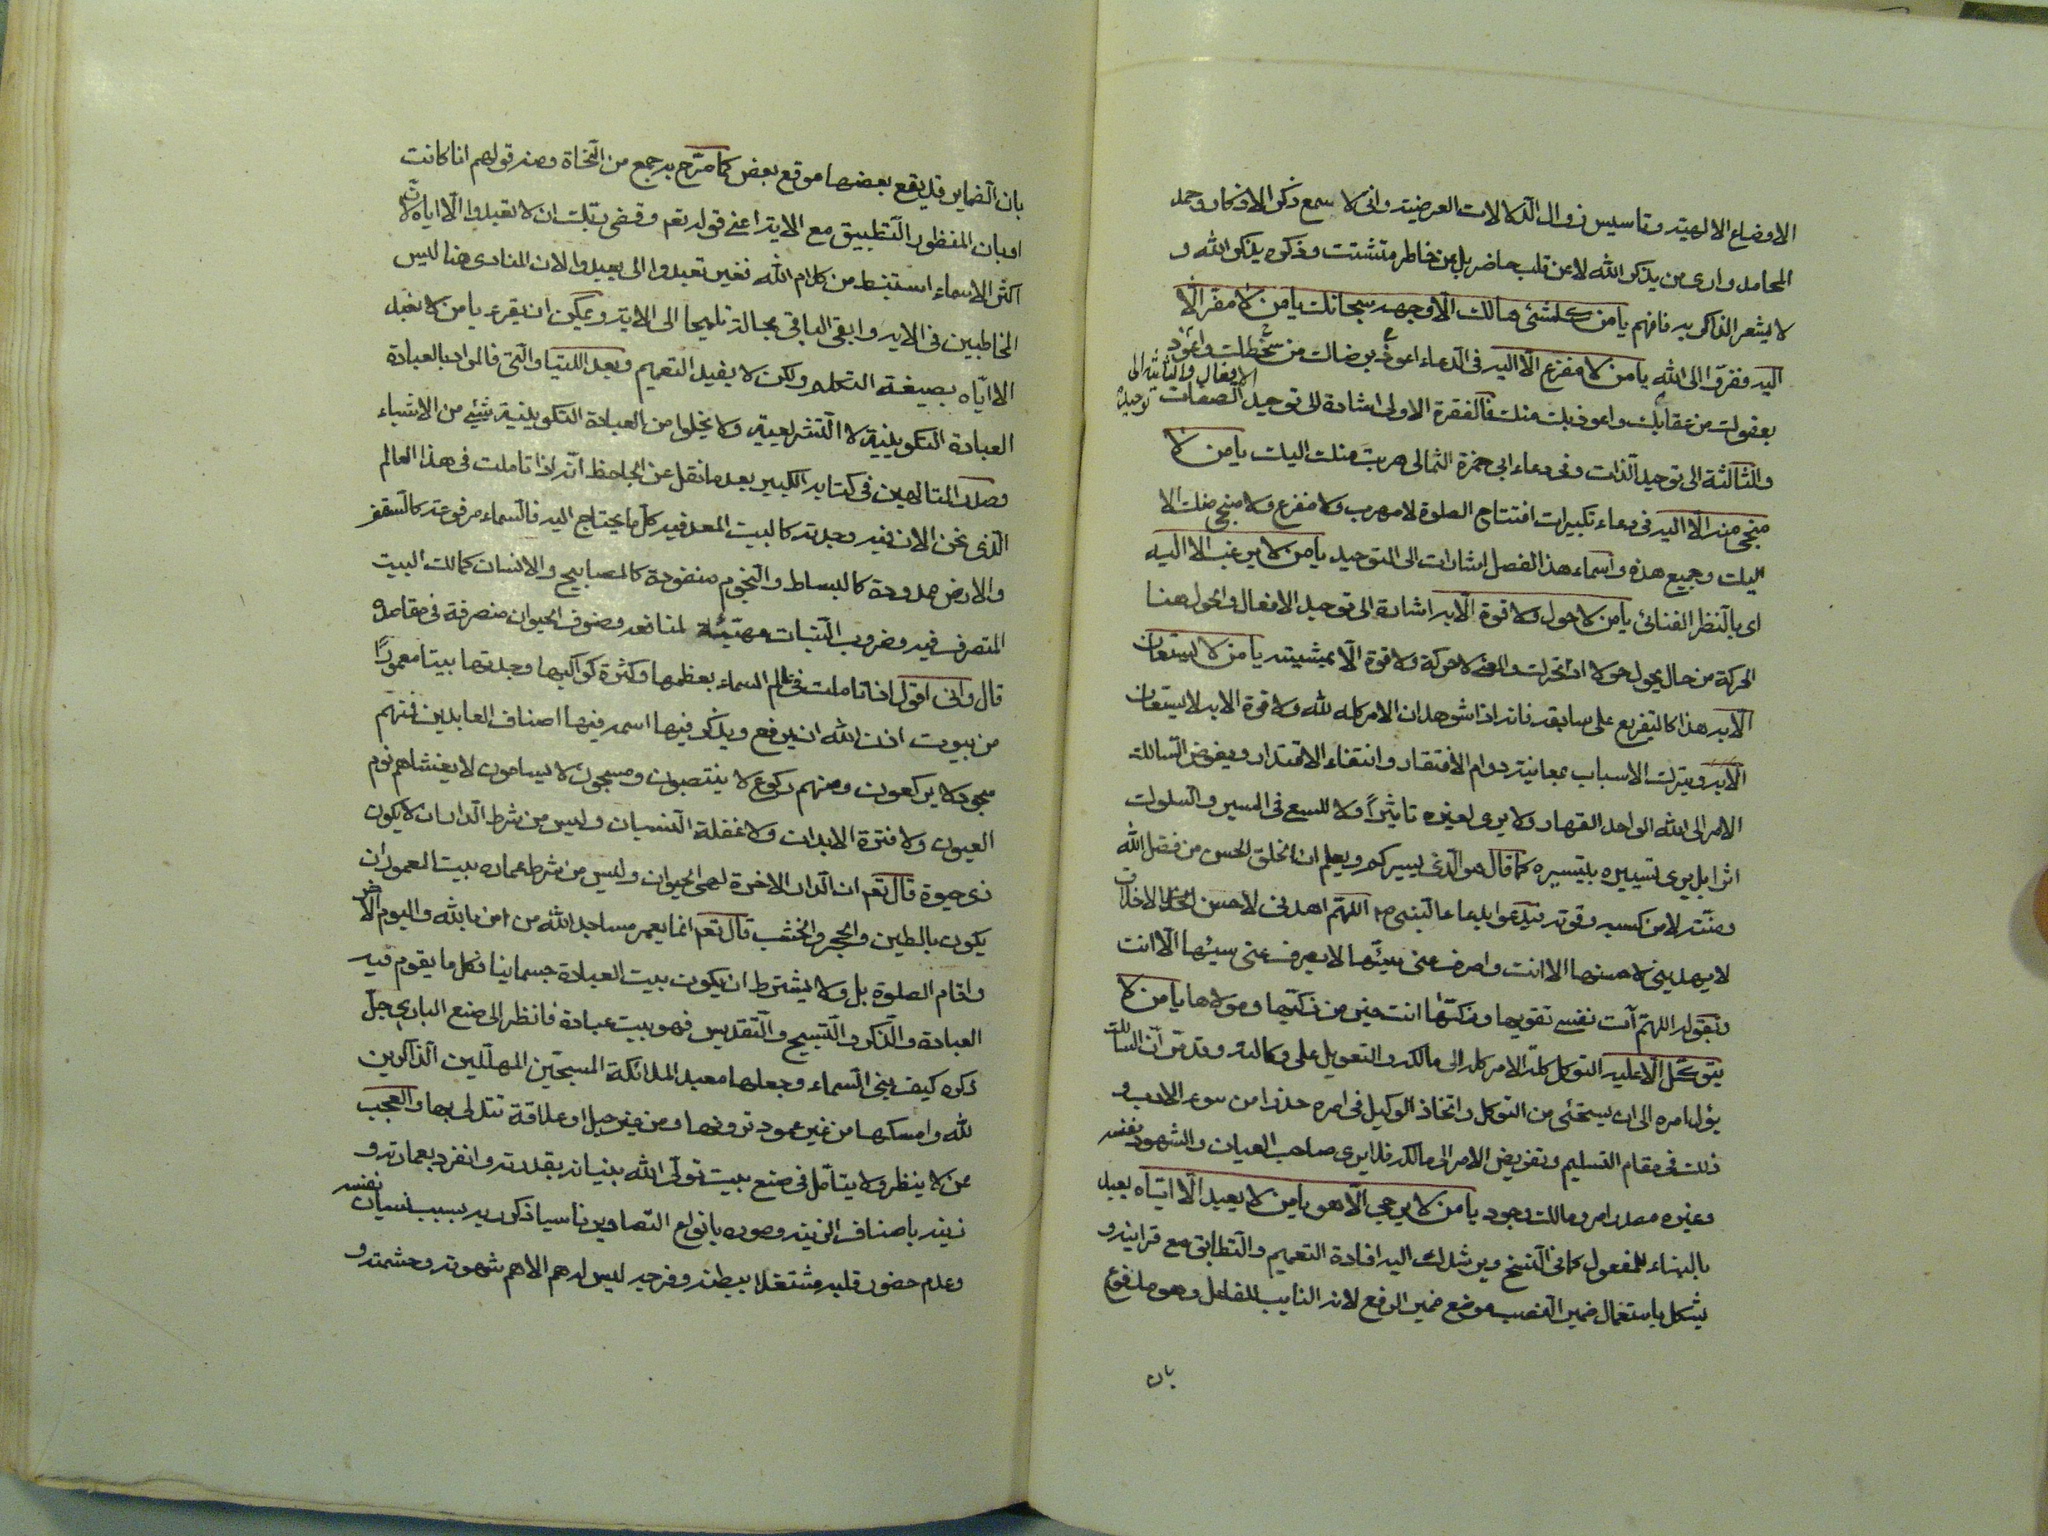 الاوضاع الالهیته وتاسیس زوال الدلالات العرضیته وانی لا سمع ذکر الاذکار وحمد
المحامد واری من یذکر الله لا عن قلب حاضر بل عن خاطر متشتت وذکره یذکر الله و
لا یشعر الذاکر به فافهم یا من کلشئی هالک الا وجهه سبحانک یا من لا مفر الا
الیه ففروا الی الله یا من لا مفزع الا الیه فی الدعاء اعوذ برضاک من سخطک واعوذ
بعفوک من عقابک واعوذ بک منک فالفقرة الاولی اشادة الی توحید الافعال والثانیة الی توحید الصفات
والثالثة الی توحید الذات وفی دعاء ابی حمزة الثمالی هربت منک الیک یا من لا
منجی منه الا الیه فی دعاء تکبیرات افتتاح الصلوة لا مهرب ولا مفزع ولا منجی منک الا
الیک وجمیع هذه واسماء هذا الفصل اشارات الی التوحید یا من لا یرغب الا الیه
ای بالنظر الفنائی یا من لا حول ولا قوة الا به اشادة الی توحید الافعال والحول هنا
الحرکة من حال یحول حولا اذا تحرک والمعنی لا حرکة ولا قوة الا بمشیته یا من لا یستعان
الا به هذا کالتفریع علی سابقه فانه اذا شوهد ان الامر کله لله ولا قوة الا به لا یستعان
الا به ویترک الاسباب بمعاینة دوام الافتقار وانتفاء الاقتدار ویفوض السالک
الامر الی الله الواحد القهار ولا یری لغیره تاثیرا ولا للسعی فی المسیر والسلوک
اثرا بل یری تسییره بتیسیره کما قال هو الذی یسیرکم ویعلم ان الخلق الحسن من فضل الله
ومنته لا من کسبه وقوته فیدعو بدعاء النبی ص اللهم اهدنی لاحسن الاخلاق
لا یهدینی لاحسنها الا انت واصرف عنی سیئها لا یصرف عنی سیئها الا انت
وبقوله اللهم آت نفسی تقویها وزکها انت خیر من زکیها ومولاها یا من لا
یتوکل الا علیه التوکل کلة الامر کله الی مالکه والتعویل علی وکالته وقد مر ان السالک
یؤل امره الی ان یستحیی من التوکل واتخاذ الوکیل فی امره حذرا من سوء الادب و
ذلک فی مقام التسلیم وتفویض الامر الی مالکه فلا یری صاحب العیان والشهود نفسه
وغیره مصدر امر ومالک وجود یا من لا یرجی الا هو یا من لا یعبد الا ایاه یعبد
بالبناء للمفعول کما فی النسخ ویرشدک الیه افادة التعمیم والتطابق مع قراینه و
یشکل باستعمال ضمیر النصب موضع ضمیر الرفع لانه النایب للفاعل وهو مرفوع
بان
بان الضمایر قد یقع بعضها موقع بعض کما صرح به جمع من النحاة ومنه قولهم انا کانت
او بان المنظور التطبیق مع الایة اعنی قوله تعم وقضی ربک ان لا تعبدوا الا ایاه لان
اکثر الاسماء استنبط من کلام الله فغیر تعبدوا الی یعبدوا لان المنادی هنا لیس
المخاطبین فی الایه وابقی الباقی بحاله تلمیحا الی الایة ویمکن ان یقرء یا من لا نعبد
الا ایاه بصیغة التکلم ولکن لا یفید التعمیم وبعد اللتیا والتی فالمراد بالعبادة
العبادة التکوینیة لا التشریعیة ولا یخلوا من العبادة التکوینیة شیئ من الاشیاء
وصدر المتالهین فی کتابه الکبیر بعد ما نقل عن الجاحظ انه اذا تاملت فی هذا العالم
الذی نحن الان فیه وجدته کالبیت المعد فیه کل ما یحتاج الیه فالسماء مرفوعة کالسقف
والارض ممدودة کالبساط والنجوم منضودة کالمصابیح والانسان کمالک البیت
المتصرف فیه وضروب النبات مهیئة لمنافعه وصنوف الحیوان منصرفة فی مقاصده
قال وانی اقول اذا تاملت فی عالم السماء بعظمها وکثرة کواکبها وجدتها بیتا معمورا
من بیوت اذن الله ان یرفع ویذکر فیها اسمه فیها اصناف العابدین فمنهم
سجود لا یرکعون ومنهم رکوع لا ینتصبون ومسبحون لا یسامون لا یغشاهم نوم
العیون ولا فترة الابدان ولا غفلة النسیان ولیس من شرط الدار ان لا یکون
ذی حیوة قال تعم ان الدار الاخرة لهی الحیوان ولیس من شرط عمارة بیت المعمور ان
یکون بالطین والحجر والخشب قال تعم انما یعمر مساجد الله من امن بالله والیوم الاخر
واقام الصلوة بل ولا یشترط ان یکون بیت العبادة جسمانیا فکل ما یقوم فیه
العبادة والذکر والتسبیح والتقدیس فهو بیت عبادة فانظر الی صنع الباری جل
ذکره کیف بنی السماء وجعلها معبد الملائکة المسبحین المهللین الذاکرین
لله وامسکها من غیر عمود ترونها ومن غیر حبل او علاقة تتدلی بها والعجب
من لا ینظر ولا یتامل فی صنع بیت تولی الله بنیانه بقدرته وانفرد بعمارته و
زینه باصناف الزینة وصوره بانواع التصاویر ناسیا ذکر ربه بسبب نسیان نفسه
وعدم حضور قلبه مشتغلا ببطنه وفرجه لیس له هم الا هم شهوته وحشمته و